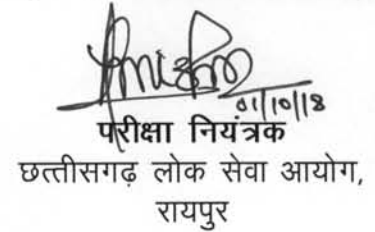 01/10/18
परीक्षा नियंत्रक
छत्तीसगढ़ लोक सेवा आयोग,
रायपुर